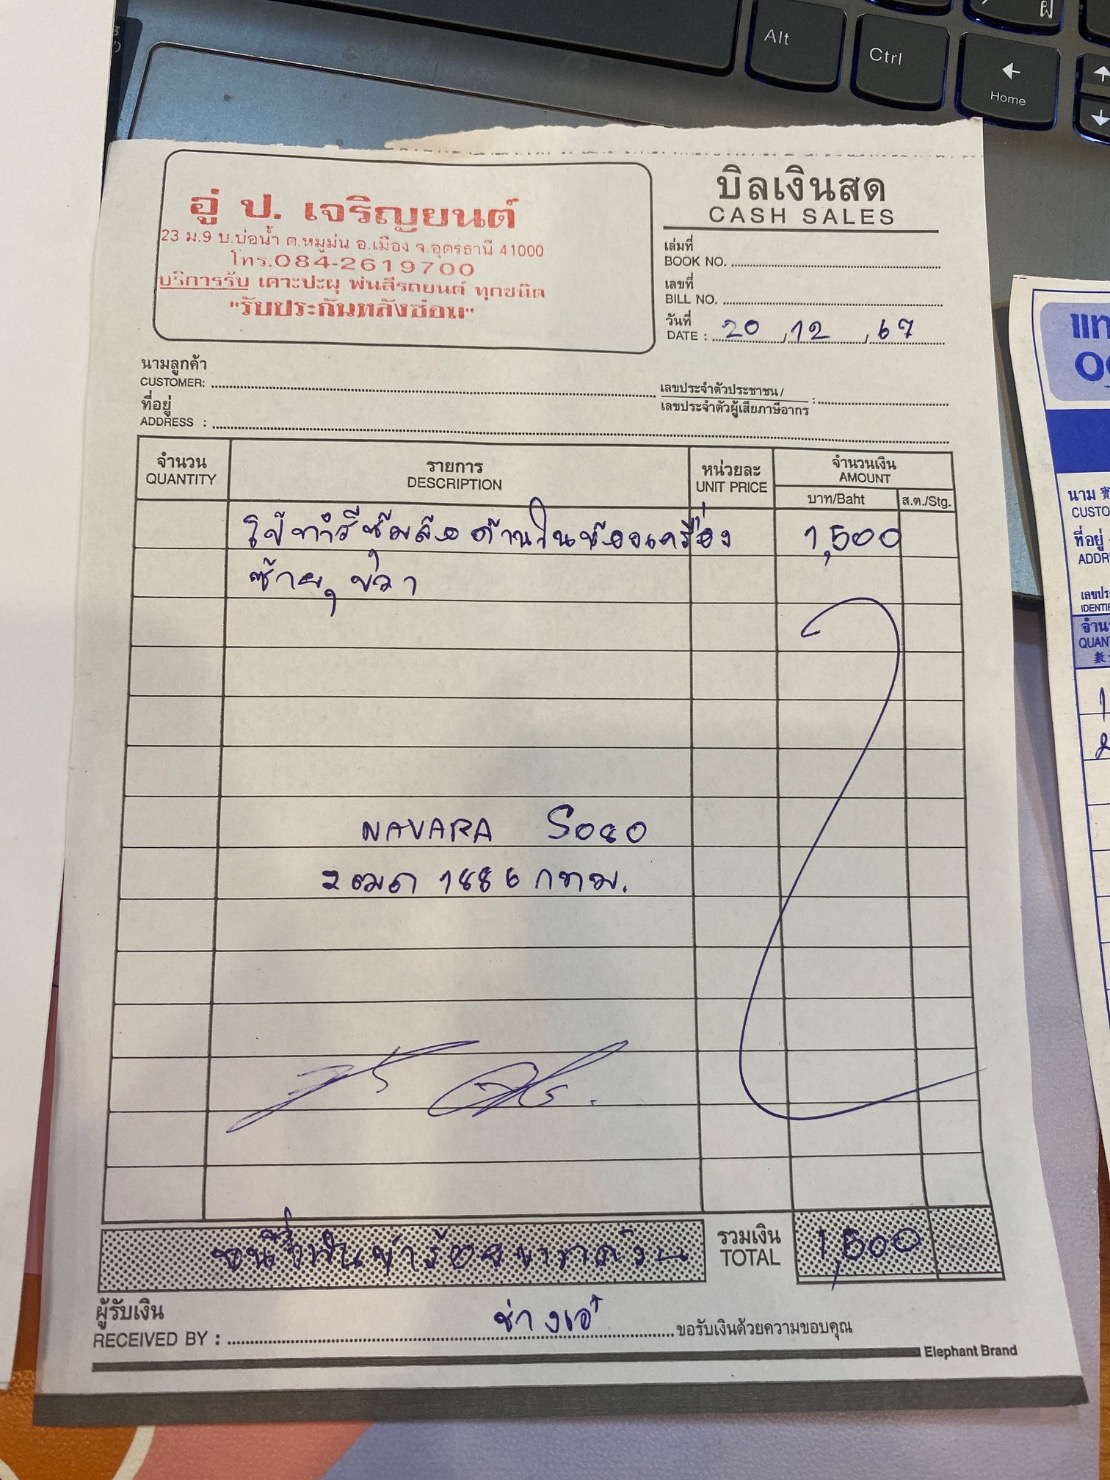 Alt
Ctrl
Home
อู่ ป. เจริญยนต์
23 ม.9 บ.บ่อน้ำ ต.หมูม่น อ.เมือง จ.อุดรธานี 41000
โทร.084-2619700
บริการรับ เคาะปะผุ พ่นสีรถยนต์ ทุกชนิด
"รับประกันหลังซ่อม"
บิลเงินสด
CASH SALES
เล่มที่
BOOK NO.
เลขที่
BILL NO.
วันที่
DATE : 20 12 67
นามลูกค้า
CUSTOMER:
เลขประจำตัวประชาชน/
เลขประจำตัวผู้เสียภาษีอากร :
ที่อยู่
ADDRESS :
จำนวน รายการ หน่วยละ จำนวนเงิน
QUANTITY DESCRIPTION UNIT PRICE AMOUNT
บาท/Baht ส.ต./Stg.
ซุ้มล้อ ด้านในห้องเครื่อง 1,500
ซ้าย, ขวา
NAVARA
1886 กทม.
รวมเงิน
TOTAL 1,500
ผู้รับเงิน
RECEIVED BY : ขอรับเงินด้วยความขอบคุณ
Elephant Brand
นาม
CUSTO
ที่อยู่
ADDR
เลขประ
IDENTIF
จำนว
QUAN